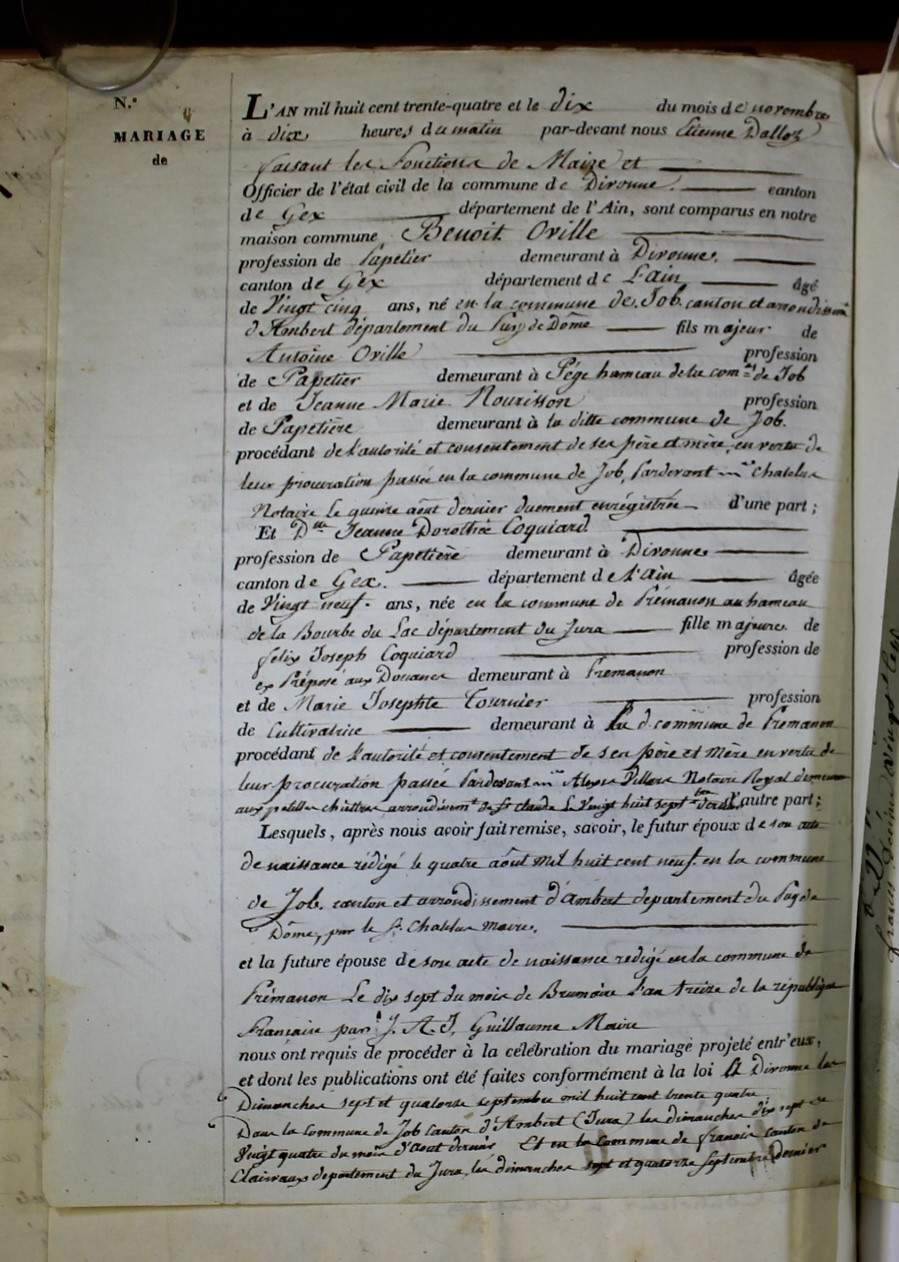 N.º 9
MARIAGE
de
L'AN mil huit cent trente-quatre et le dix du mois de novembre
à dix heures du matin par-devant nous Etienne Dalloz
faisant les Fonctions de Maire et
Officier de l'état civil de la commune de Divonne canton
de Gex département de l'Ain, sont comparus en notre
maison commune Benoit Oville
profession de Papetier demeurant à Divonne.
canton de Gex département de L'ain âgé
de Vingt cinq ans, né en la commune de Job canton et arrondissemt
d'Ambert département du Puy de Dôme fils majeur de
Antoine Oville profession
de Papetier demeurant à Pége hameau de la com.ne de Job
et de Jeanne Marie Nourisson profession
de Papetière demeurant à la ditte commune de Job.
procédant de l'autorité et consentement de ses père et mère, en vertu de
leur procuration passée en la commune de Job, Pardevant me Chatelus
Notaire le quinze août dernier duement enrégistrée d'une part ;
Et Dlle Jeanne Dorothée Coquiard
profession de Papetière demeurant à Divonne
canton de Gex. département de l'ain âgée
de Vingt neuf. ans, née en la commune de Prémanon au hameau
de la Bourbe du Lac département du Jura fille majeure de
felix Joseph Coquiard profession de
ex Préposé aux Douanes demeurant à Premanon
et de Marie Josephte Tournier profession
de Cultivatrice demeurant à la d commune de Premanon
procédant de l'autorité et consentement de ses père et Mère en vertu de
leur procuration passée Pardevant me Notaire Royal
aux arrondissemt de St claude Le Vingt huit septbre dernier d'autre part ;
Lesquels, après nous avoir fait remise, savoir, le futur époux de son acte
de naissance rédigé le quatre août mil huit cent neuf. en la commune
de Job. canton et arrondissement d'Ambert departement du Puy de
Dôme, par le Sr. Chatelus maire.
et la future épouse de son acte de naissance redigé en la commune de
Prémanon Le dix sept du mois de Brumaire l'an treize de la république
Française par J. A. J. Guillaume Maire
nous ont requis de procéder à la célébration du mariage projeté entr'eux,
et dont les publications ont été faites conformément à la loi à Divonne les
Dimanches sept et quatorze septembre mil huit cent trente quatre
Dans la commune de Job Canton d'Ambert (Jura) les dimanches dix sept et
Vingt quatre du mois d'Aout dernier Et en la Commune de canton de
Clairvaux departement du Jura, les dimanches sept et quatorze septembre dernier